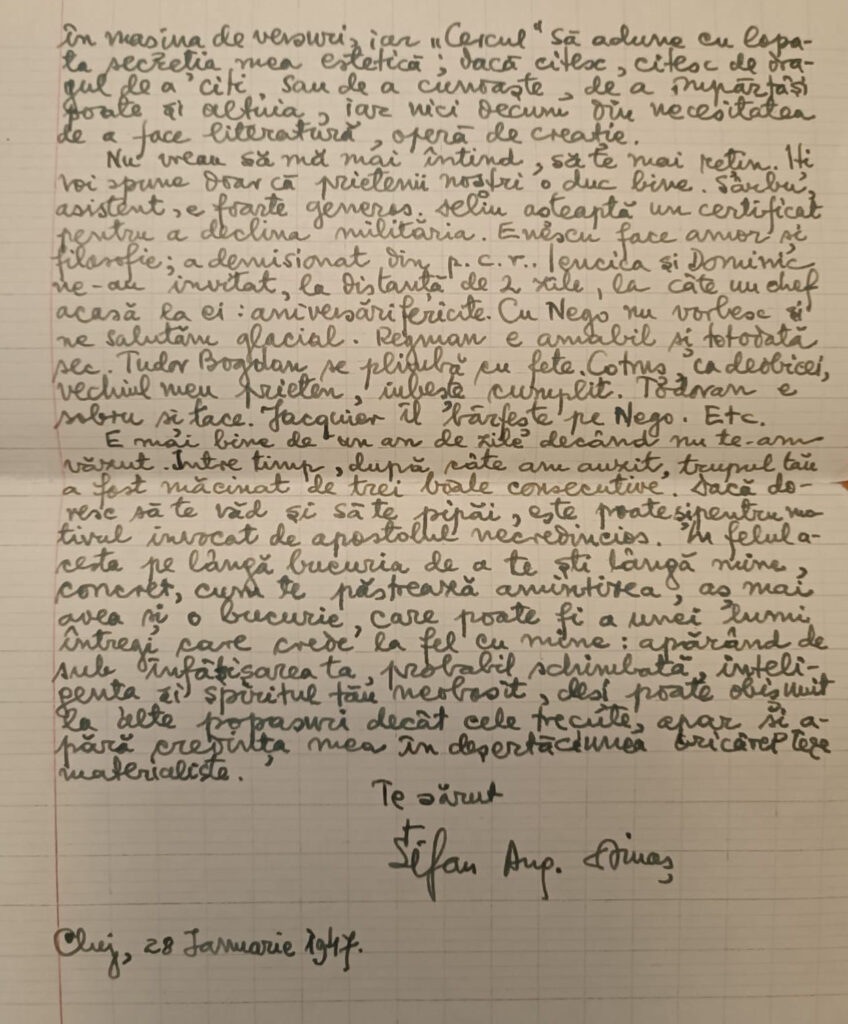 în mașina de versuri, iar „Cercul" să adune cu lopa-
ta secreția mea estetică; dacă citesc, citesc de dra-
gul de a citi, sau de a cunoaște, de a împărtăși
poate și altuia, iar nici decum din necesitatea
de a face literatură, operă de creație.
Nu vreau să mă mai întind, să te mai rețin. Iți
voi spune doar că prietenii noștri o duc bine. Sârbu,
asistent, e foarte generos. Seliu așteaptă un certificat
pentru a declina milităria. Enescu face amor și
filosofie; a demisionat din p.c.r.. Lencica și Dominic
ne-au invitat, la distanță de 2 zile, la câte un chef
acasă la ei: aniversări fericite. Cu Nego nu vorbesc și
ne salutăm glacial. Regman e amabil și totodată
sec. Tudor Bogdan se plimbă cu fete. Cotruș, ca deobicei,
vechiul meu prieten, iubește cumplit. Todoran e
sobru si tace. Jacquier îl bârfește pe Nego. Etc.
E mai bine de un an de zile decând nu te-am
văzut. Intre timp, după câte am auzit, trupul tău
a fost măcinat de trei boale consecutive. Dacă do-
resc să te văd și să te pipăi, este poate și pentru mo-
tivul invocat de apostolul necredincios. În felul a-
cesta pe lângă bucuria de a te ști lângă mine,
concret, cum te păstrează amintirea, aș mai
avea și o bucurie, care poate fi a unei lumi
întregi care crede la fel cu mine: apărând de
sub înfățișarea ta, probabil schimbată, inteli-
gența și spiritul tău neobosit, deși poate obișnuit
la alte popasuri decât cele trecute, apar și a-
pără credința mea în deșertăciunea oricărei teze
materialiste.
Te sărut
Ștefan Aug. Doinaș
Cluj, 28 Ianuarie 1947.